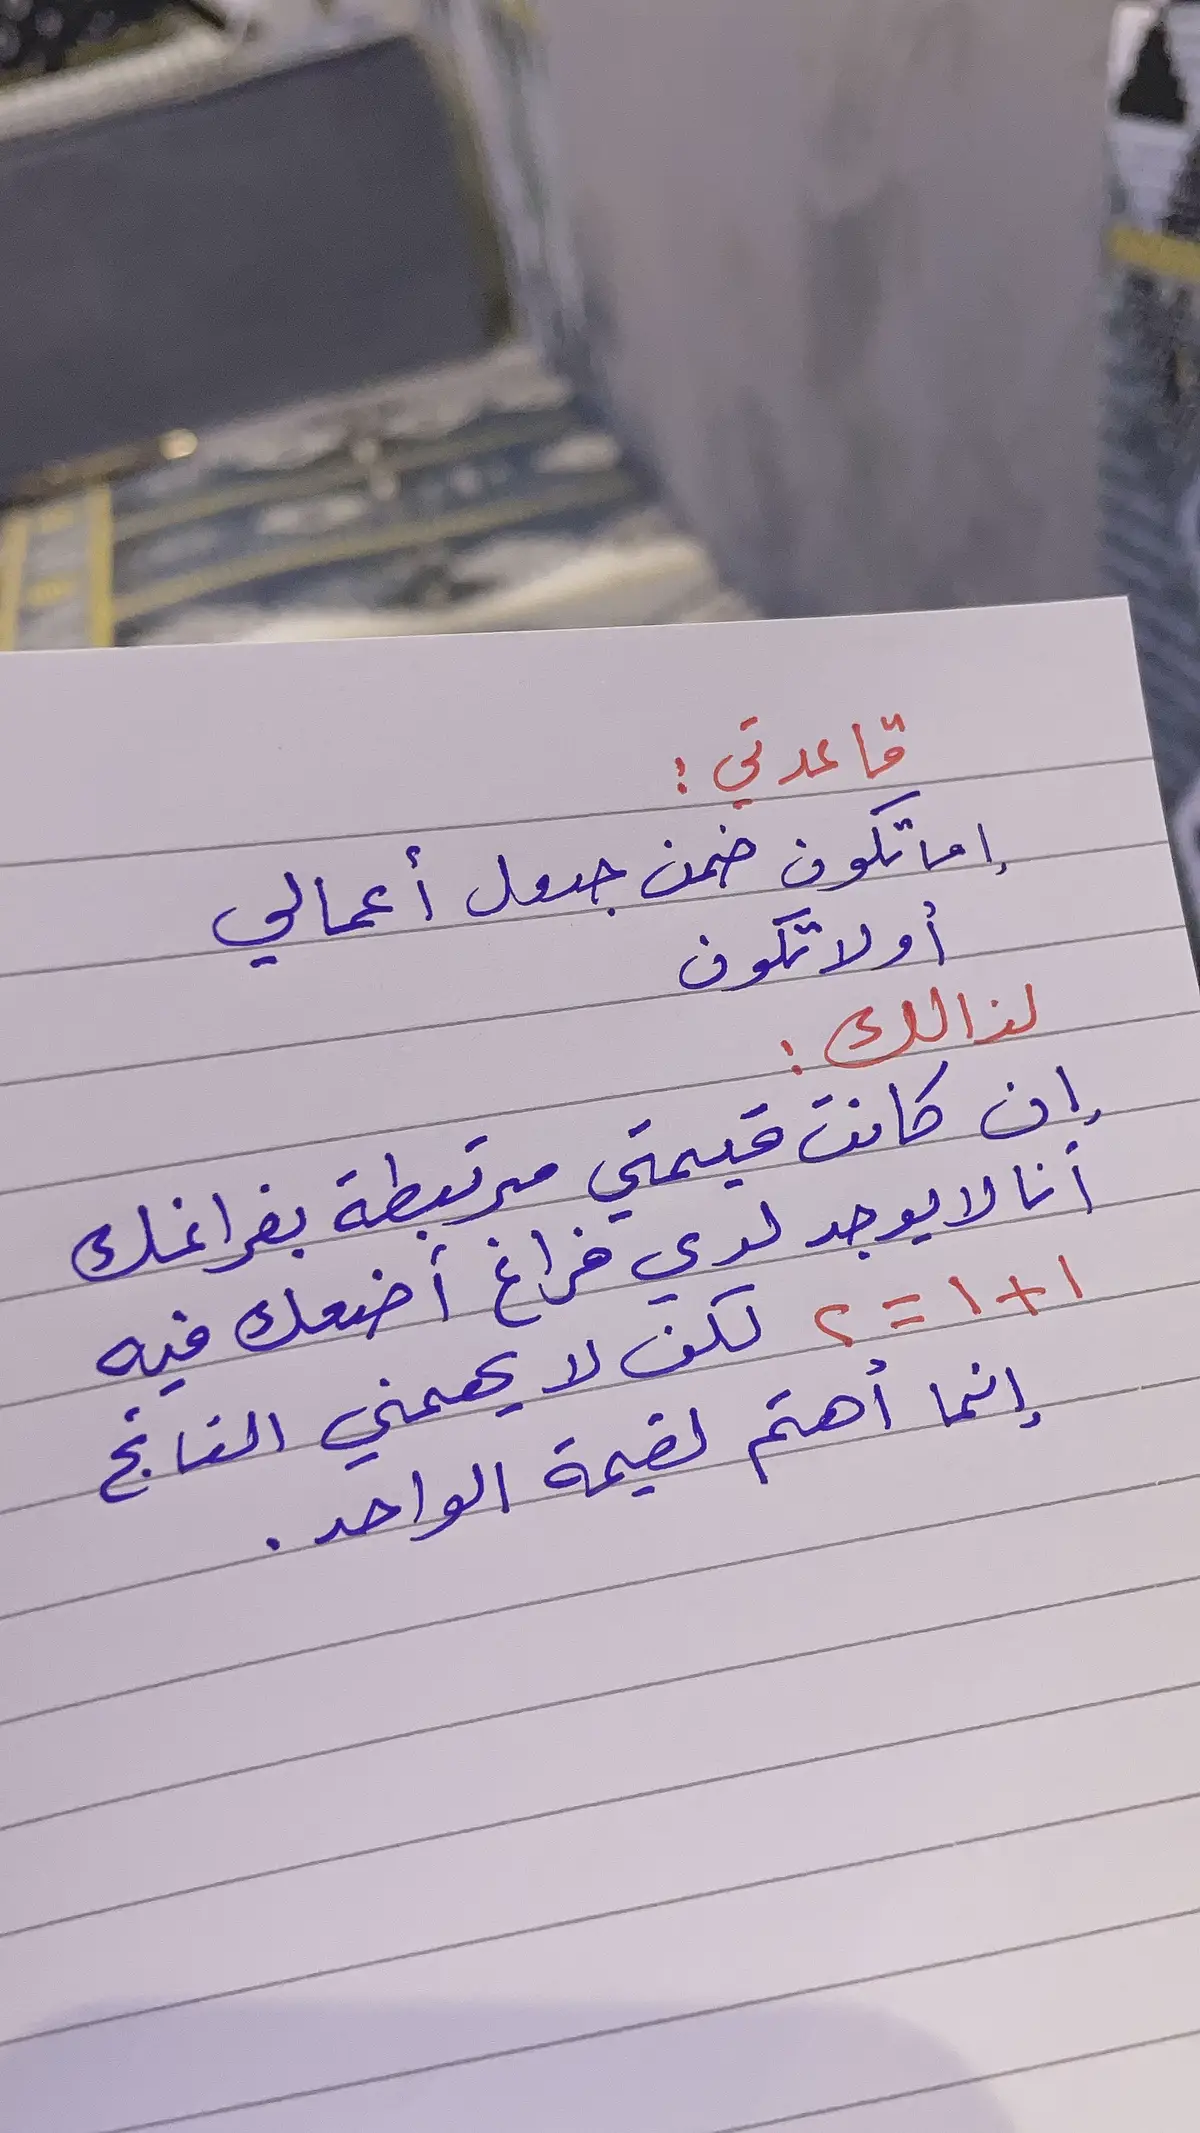 قاعدتي :
إما تكون ضمن جدول أعمالي
أو لا تكون
لذالك :
إن كانت قيمتي مرتبطة بفراغك
أنا لا يوجد لدي فراغ أضعك فيه
١+١=٢ لكن لا يهمني الناتج
إنما أهتم لقيمة الواحد .